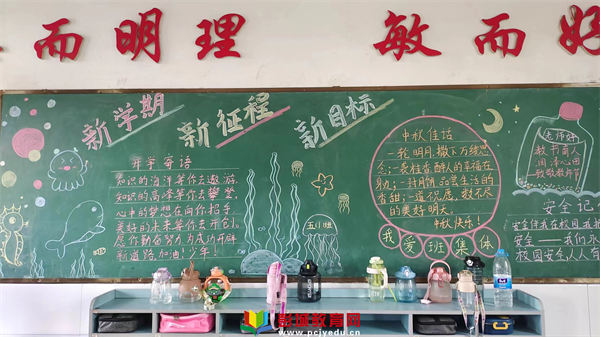 而明理
敏而好
新学期
新征程
新目标
开学寄语
知识的海洋等你去遨游,
知识的高峰等你去攀登,
心中的梦想在向你招手,
美好的未来等你去开创。
愿你勤奋努力为成功开辟
新道路,加油!少年!
五(1)班
中秋佳话
一轮明月,撒下万缕思
念;一支桂香醉人的幸福在
一封月饼,品尝生活的
香甜;一道祝愿,数不尽
的美好明天。
中秋快乐!
我爱班集体
老师好
教书育人
润泽心田
致敬教师节
安全记
安全伴我在校园,我把
安全——我们永
校园安全人人
彭城教育网
www.pcjyedu.cn